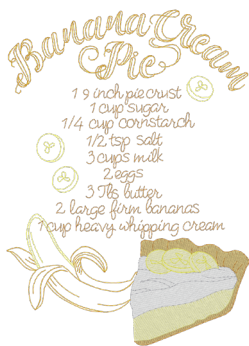 Banana Cream
Pie
1 9 inch pie crust
1 cup sugar
1/4 cup cornstarch
1/2 tsp salt
3 cups milk
2 eggs
3 Tbs butter
2 large firm bananas
1 cup heavy whipping cream